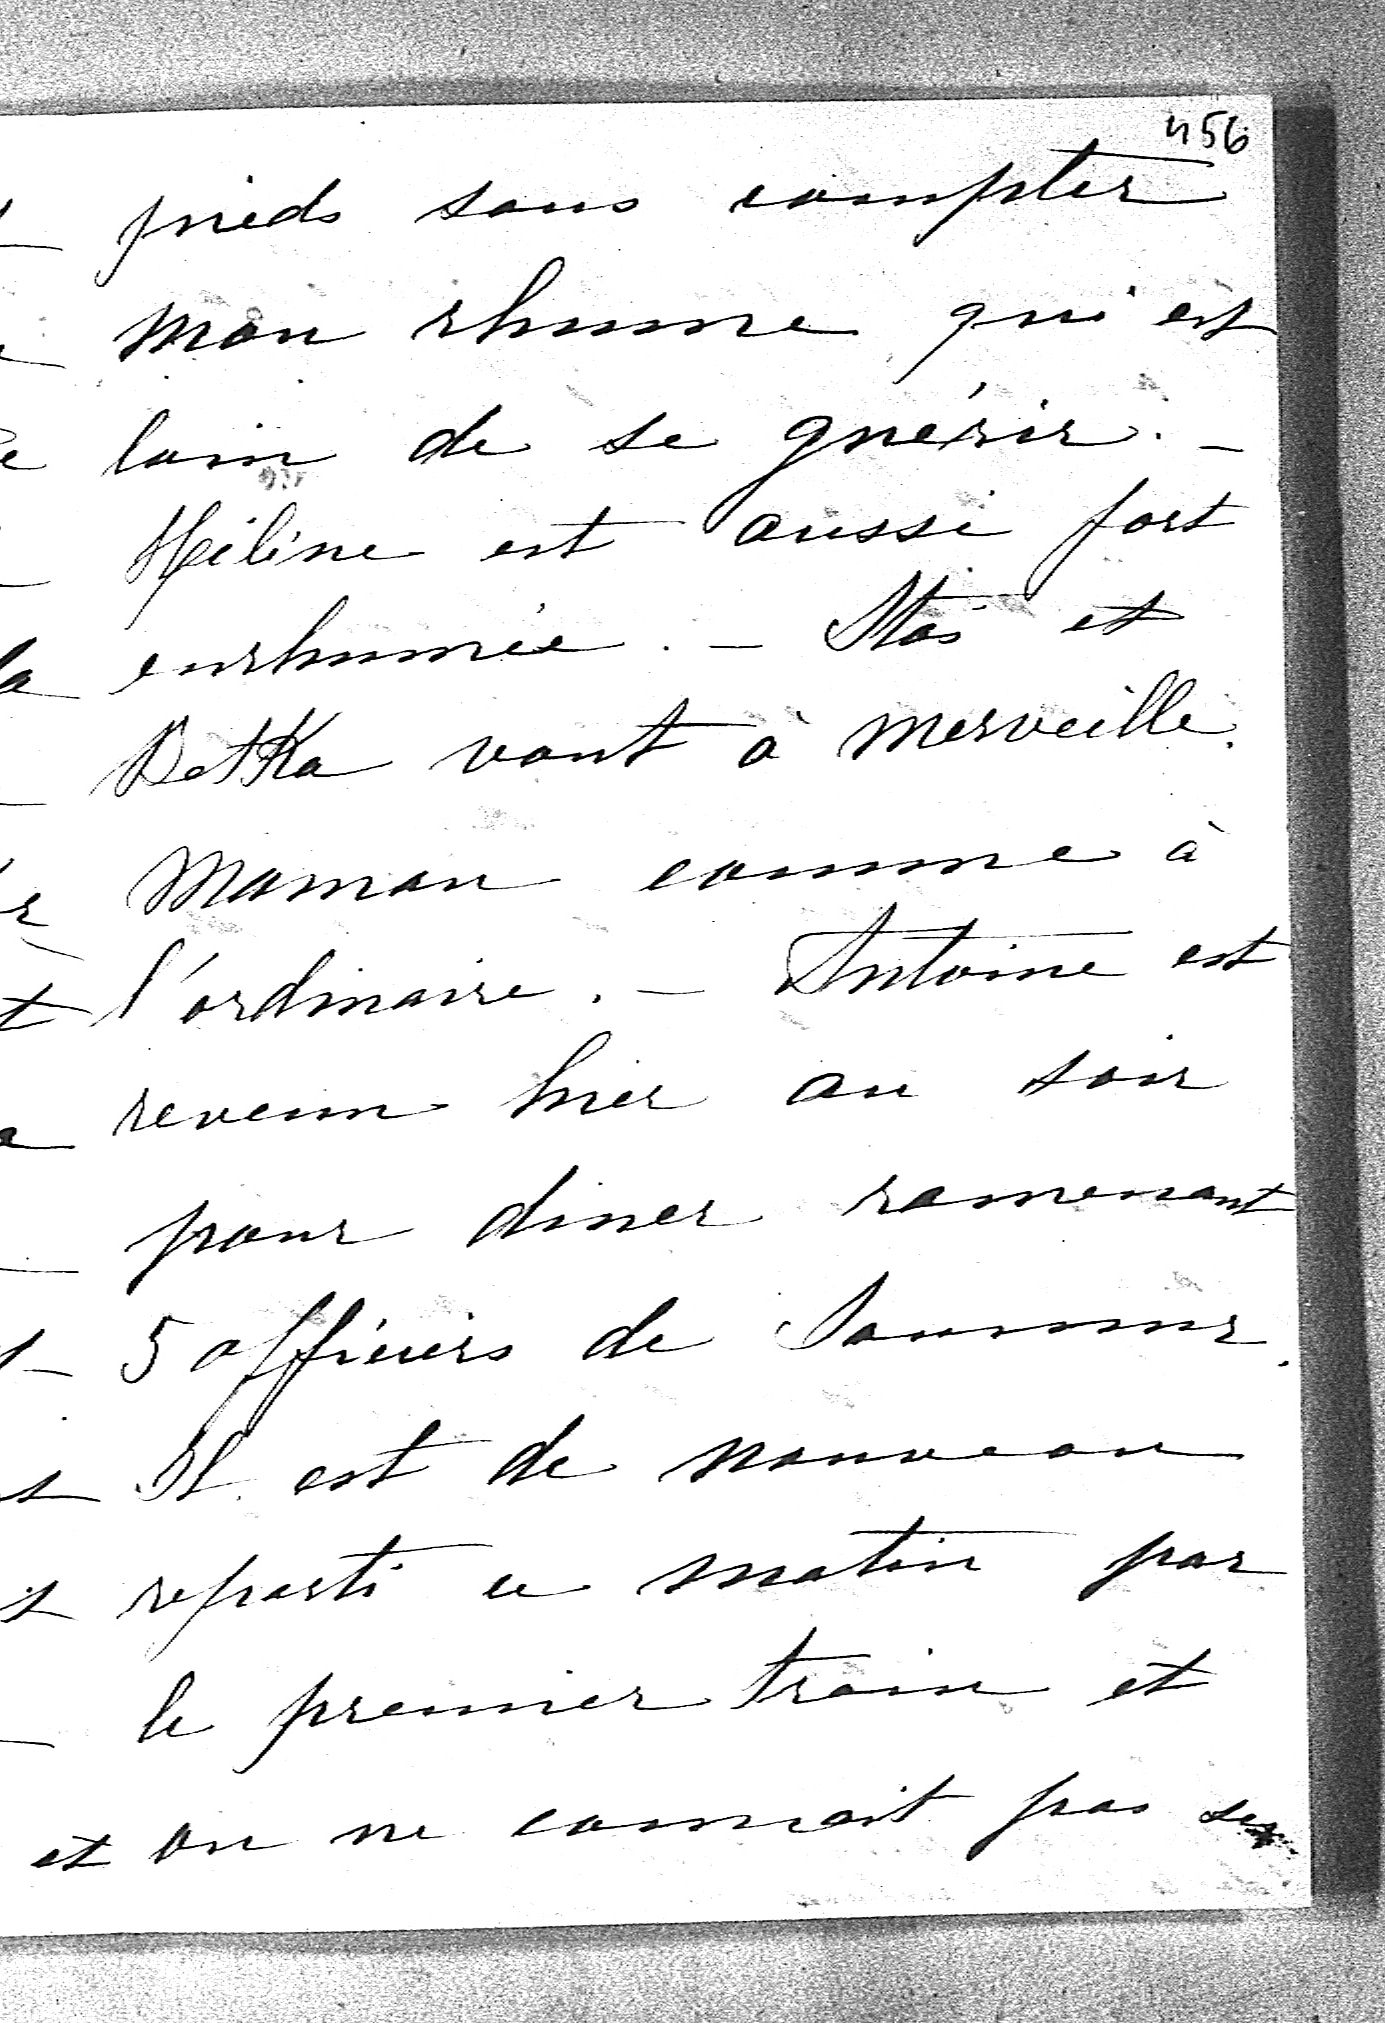 456
pieds sans compter
mon rhume qui est
loin de se guérir. –
Hélène est aussi fort
enrhumée. – Stas et
Betka vont à merveille.
Maman comme à
l'ordinaire. – Antoine est
revenu hier au soir
pour diner ramenant
5 officiers de Saumur.
Il est de nouveau
reparti ce matin par
le premier train et
et on ne connait pas ses